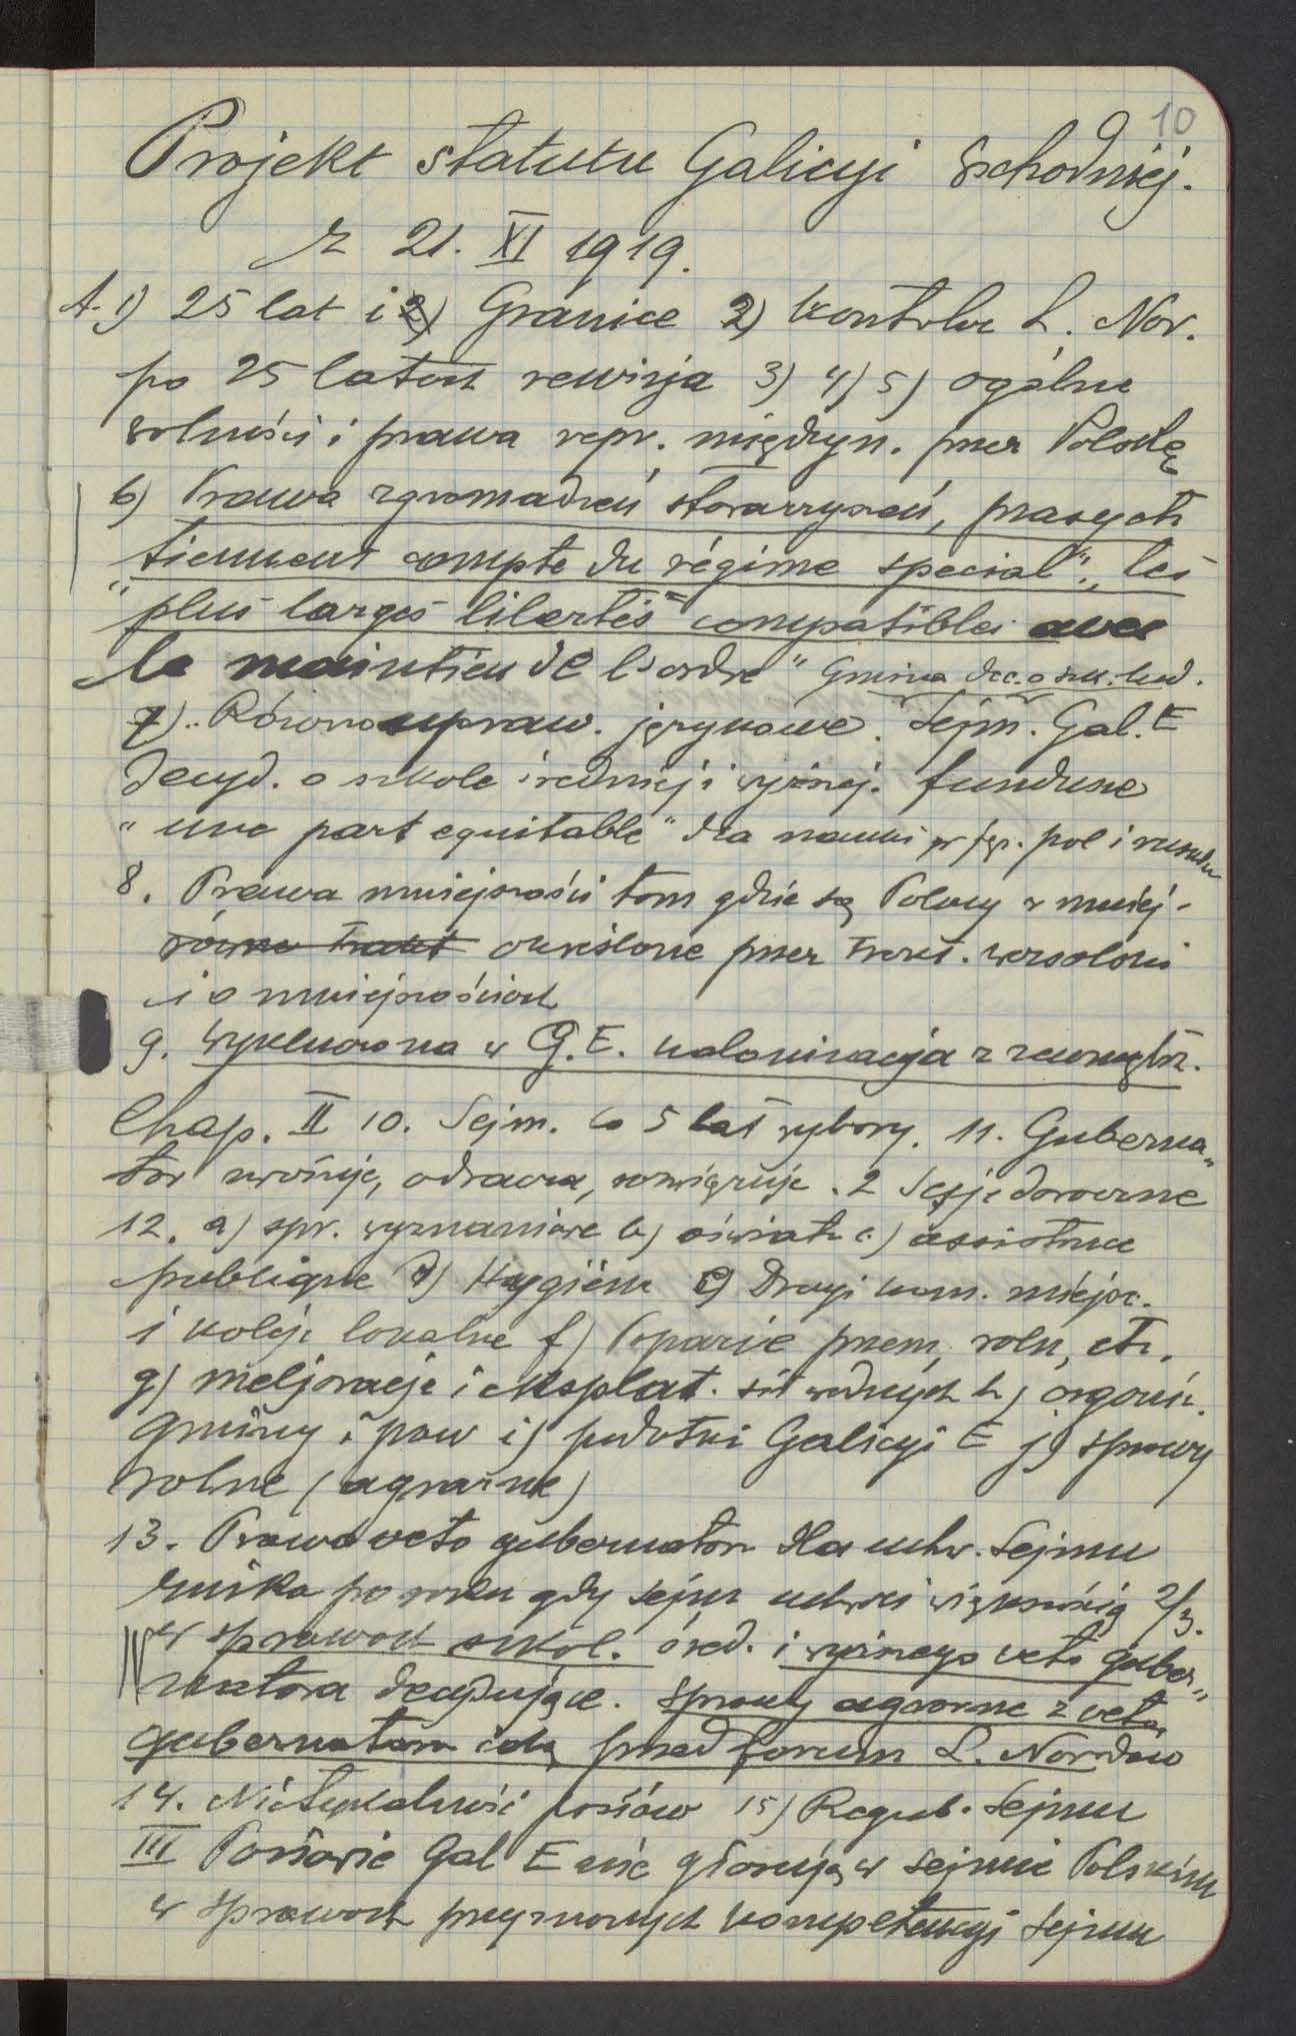 10
Projekt statutu Galicyi Wschodniej.
z 21. XI 1919.
A. 1) 25 lat i 2) Granice 2) kontrola L. Nar.
po 25 latach rewizja 3) 4) 5) ogólne
wolności i prawa repr. międzyn. przez Polskę
6) Prawa zgromadzeń stowarzyszeń, prasy etc
tiennent compte du régime special", les
"plus larges libertés compatibles avec
le maintien de l'ordre" Gmina dec. o szk. lud.
7) Równoupraw. językowe. Sejm. Gal. E
decyd. o szkole średniej i wyższej. fundusze
"une part equitable" dla nauki w jęz. pol i rusku
8. Prawa mniejszości tam gdzie są Polacy w mniej-
równe trakt określone przez trakt. wersalski
i o mniejszościach
9. Wykluczona w G. E. kolonizacja z zewnątrz.
Chap. II 10. Sejm. Co 5 lat wybory. 11. Guberna-
tor zwołuje, odracza, rozwiązuje. 2 Sesje doroczne
12. a) spr. wyznaniowe b) oświata c) assistance
publique d) Hygiène e) Drogi kom. miejsc.
i koleje lokalne f) Poparcie przem, roln, etc.
g) meljoracje i eksploat. sił wodnych h) organiz.
gminy i pow i) podatki Galicyi E j) sprawy
rolne (agrarne)
13. Prawo veto gubernatora dla uchw. Sejmu
znika po roku gdy sejm uchwali większością 2/3.
w sprawach szkol. śred. i wyższego veto guber-
natora decydujące. Sprawy agrarne z veta
gubernatora idą przed forum L. Narodów
14. Nietykalność posłów 15) Regul. Sejmu
III Posłowie Gal E nie głosują w sejmie Polskim
w sprawach przyznanych kompetencji Sejmu